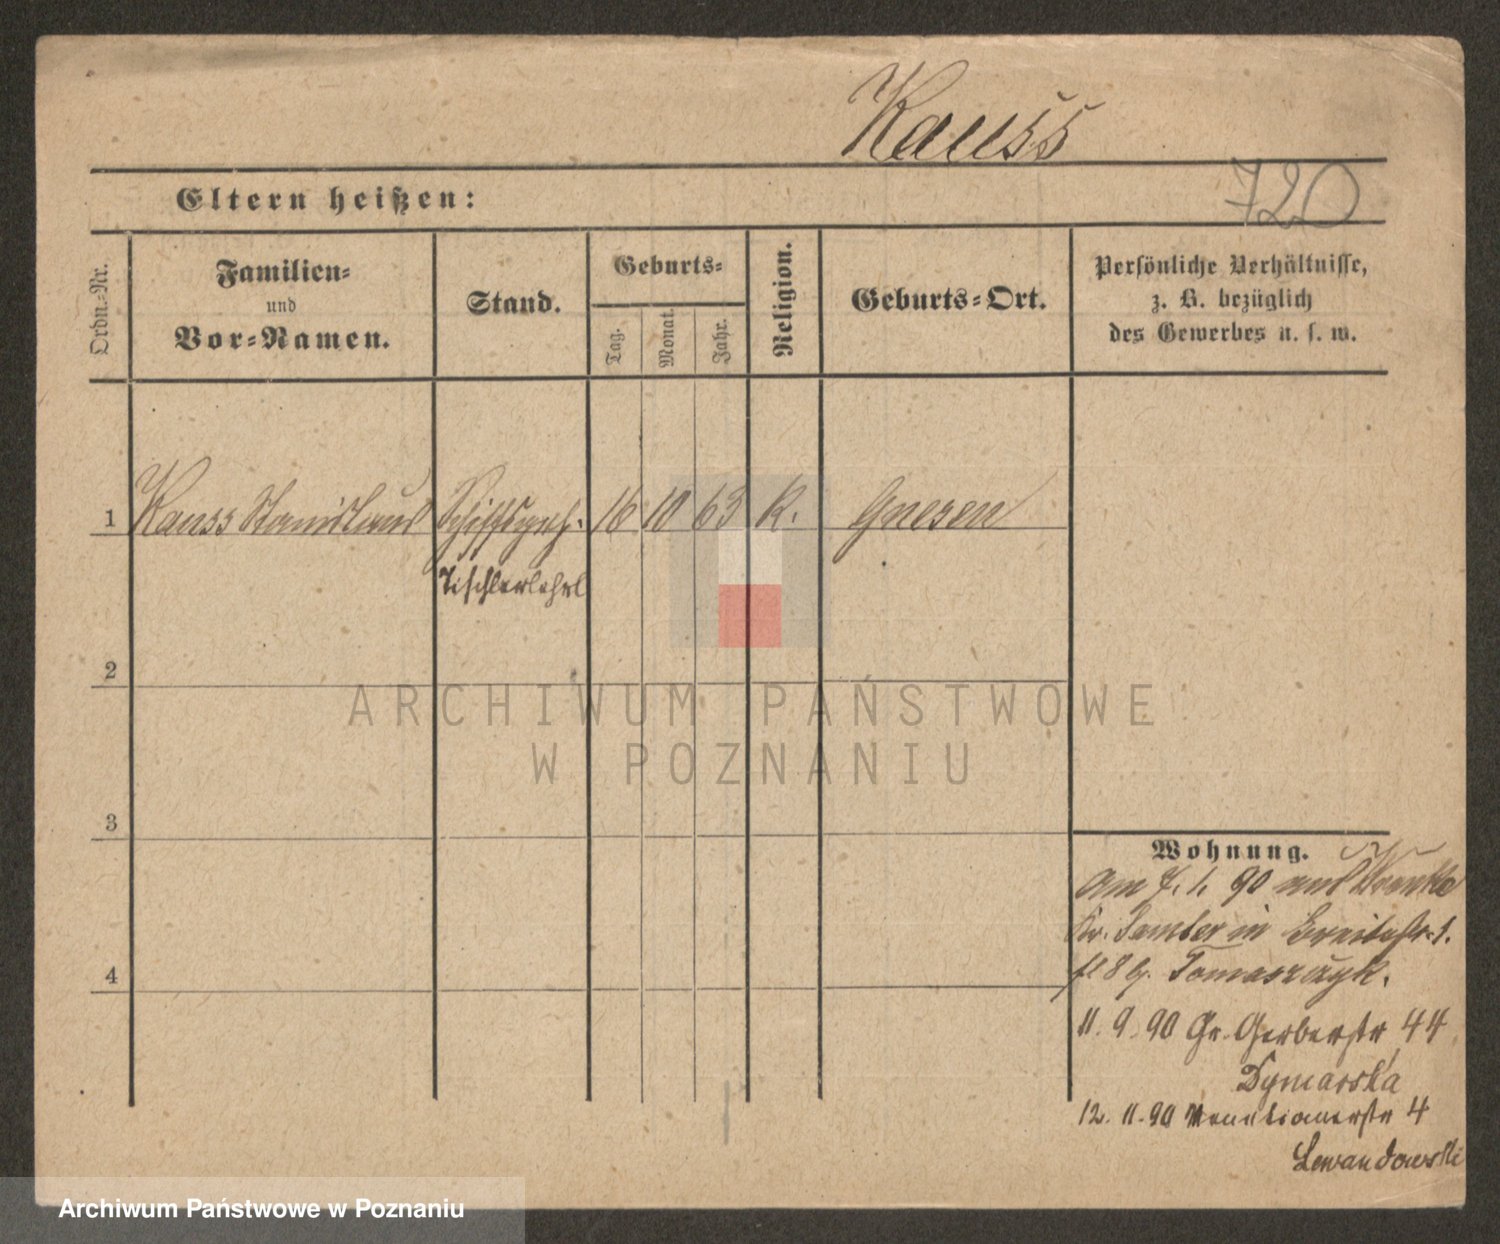 Kauss
720
Eltern heißen:
Ordn.-Nr.
Familien-
und
Vor-Namen.
Stand.
Geburts-
Tag.
Monat.
Jahr.
Religion.
Geburts-Ort.
Persönliche Verhältnisse,
z. B. bezüglich
des Gewerbes u. s. w.
1 Kauss Stanislaus 16 10 63 K. Gnesen
Tischlerlehrl
2
3
4
Wohnung.
am 7. 1. 90 aus
Kr. Samter in Breitestr. 1.
Tomaszczyk.
11. 9. 90 Gr. Gerberstr. 44
Dymarska
12. 11. 90 Venetianerstr 4
Lewandowski
ARCHIWUM PAŃSTWOWE
W POZNANIU
Archiwum Państwowe w Poznaniu